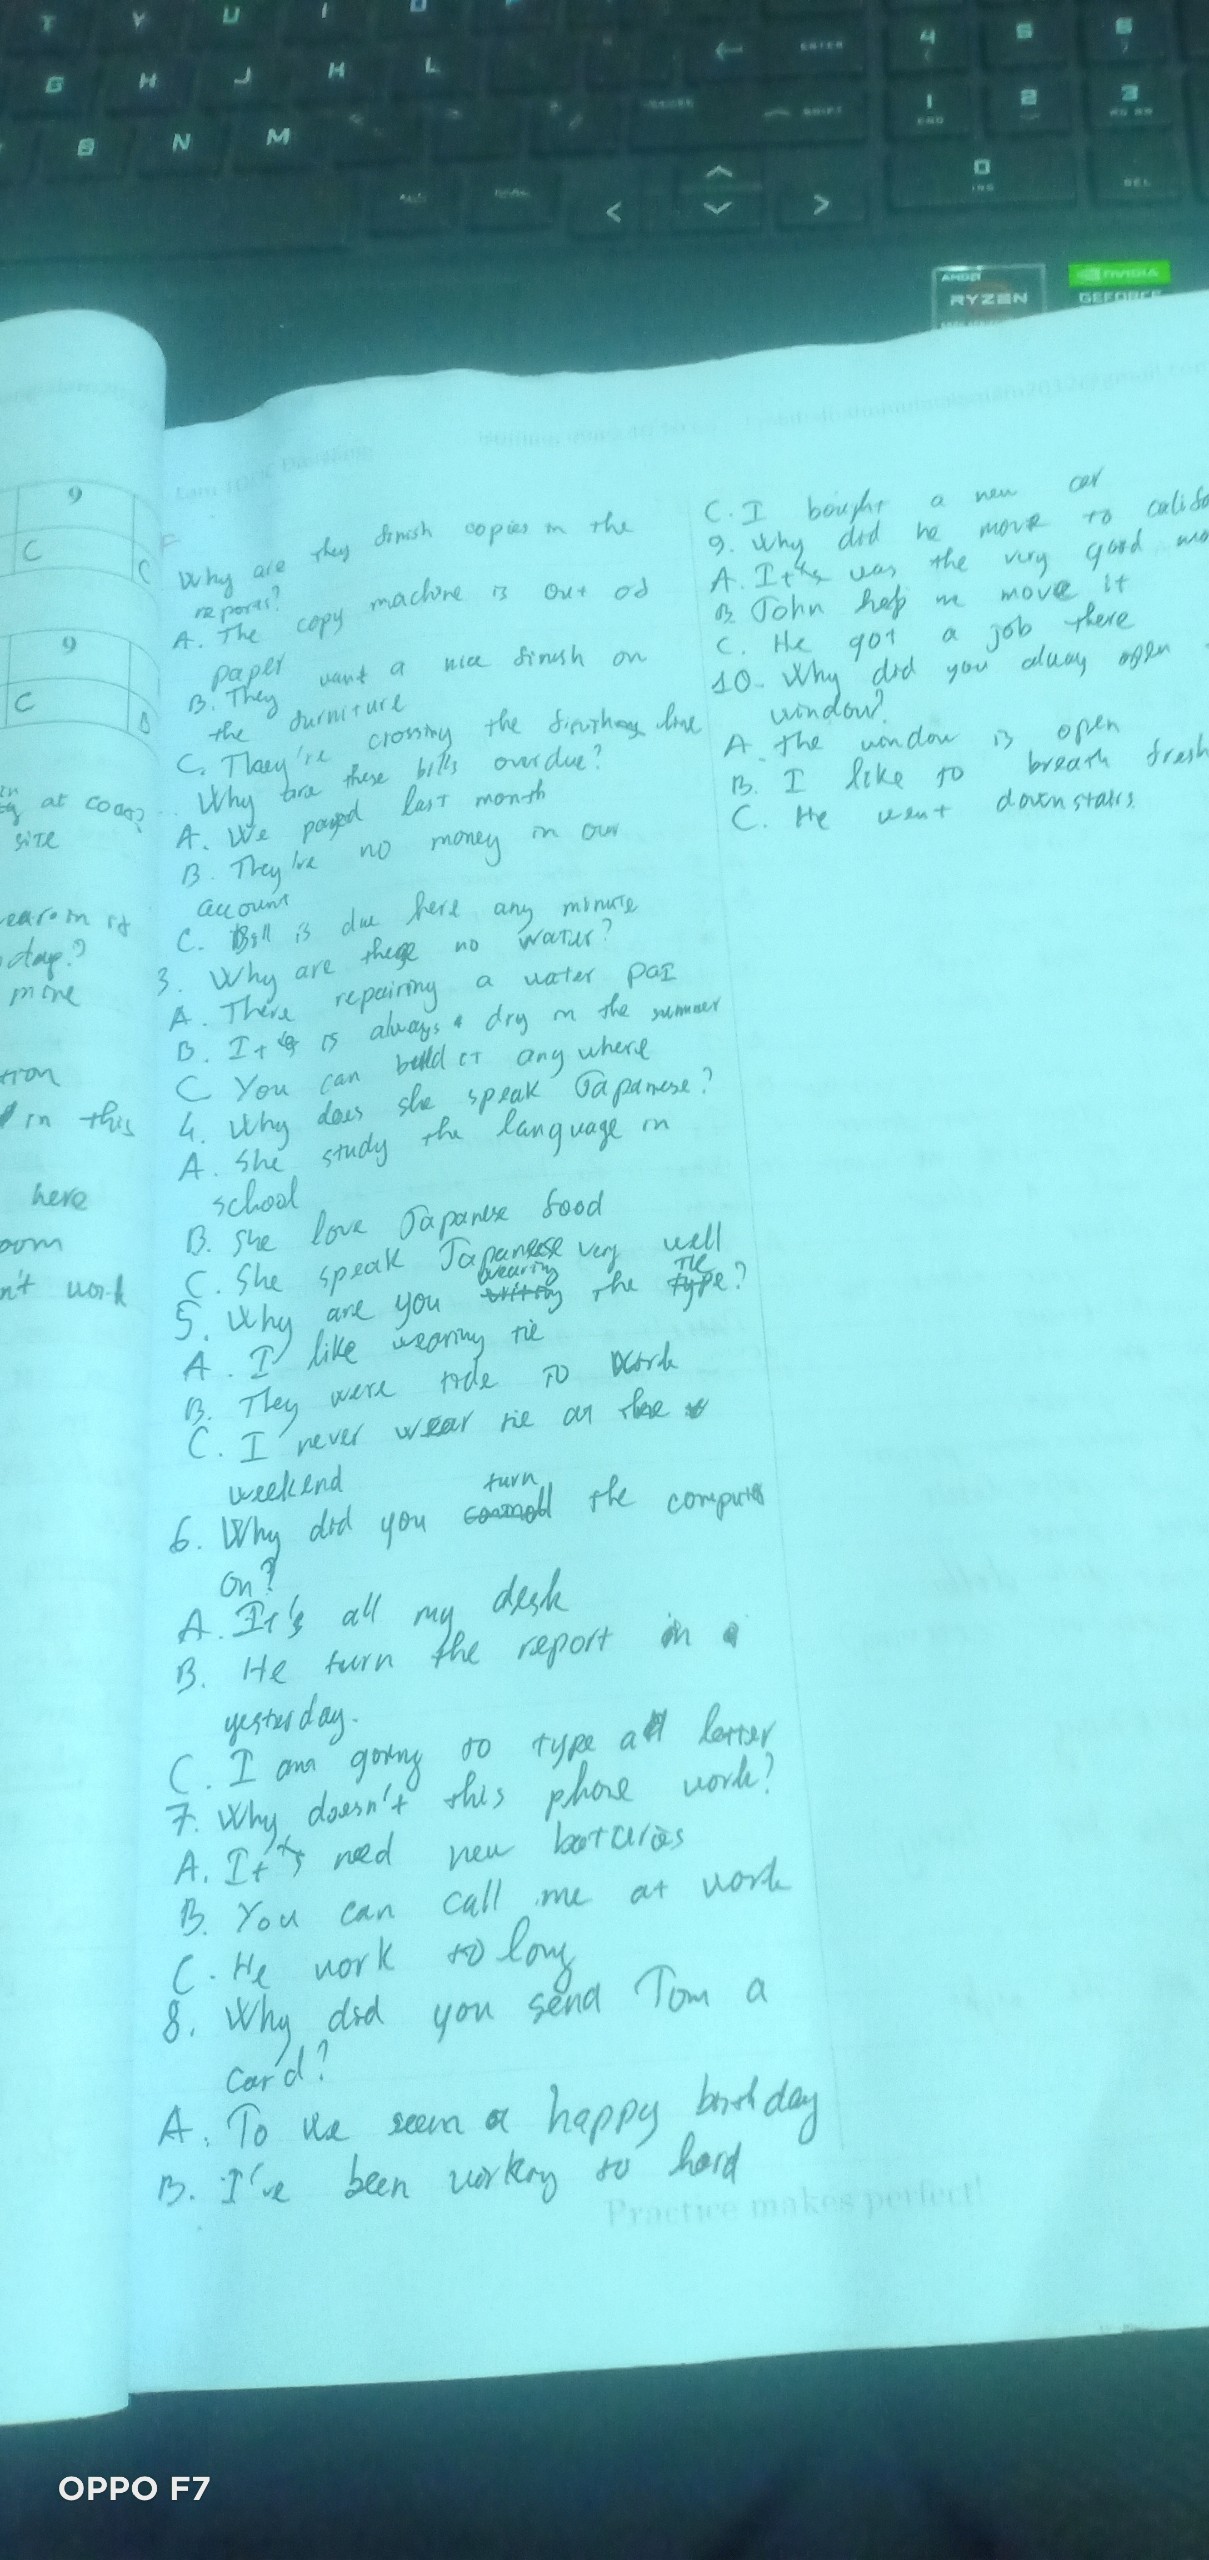 T Y U I O
G H J K L
ENTER
4 5 6
B N M
SHIFT
1 2 3
END
0
INS
DEL
< >
AMD
RYZEN
NVIDIA
GEFORCE
9
C
C
9
C
at
size
dap?
mine
in this
here
n't work
Why are they finish copies in the
reports?
A. The copy machine is out od
paper
B. They want a nice finish on
the furniture
C. They're crossing the line
Why are these bills overdue?
A. We payed last month
B. They've no money in our
account
C. Bill is due here any minute
3. Why are there no water?
A. There repairing a water
B. It is always dry in the summer
C You can build it any where
4. Why does she speak Japanese?
A. She study the language in
school
B. She love Japanese food
C. She speak Japanese very well
5. Why are you wearing the tie?
A. I like wearing tie
B. They were to work
C. I never wear tie at the
weekend
6. Why did you turn the computer
on?
A. It's all my desk
B. He turn the report in
yesterday.
C. I am going to type a letter
7. Why doesn't this phone work?
A. It need new batteries
B. You can call me at work
C. He work so long
8. Why did you send Tom a
card?
A. To a happy birthday
B. I've been working so hard
C. I bought a new car
9. Why did he move to
A. It was the very good
B. John help me move it
C. He got a job there
10. Why did you alway open
window?
A. The window is open
B. I like to breath fresh
C. He went downstairs
Practice makes perfect!
OPPO F7